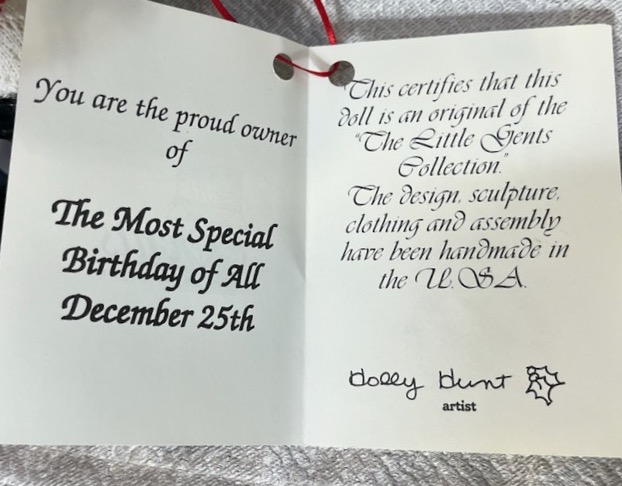 You are the proud owner
of
The Most Special
Birthday of All
December 25th
This certifies that this
doll is an original of the
"The Little Gents
Collection."
The design, sculpture,
clothing and assembly
have been handmade in
the U.S.A.
Holly Hunt
artist